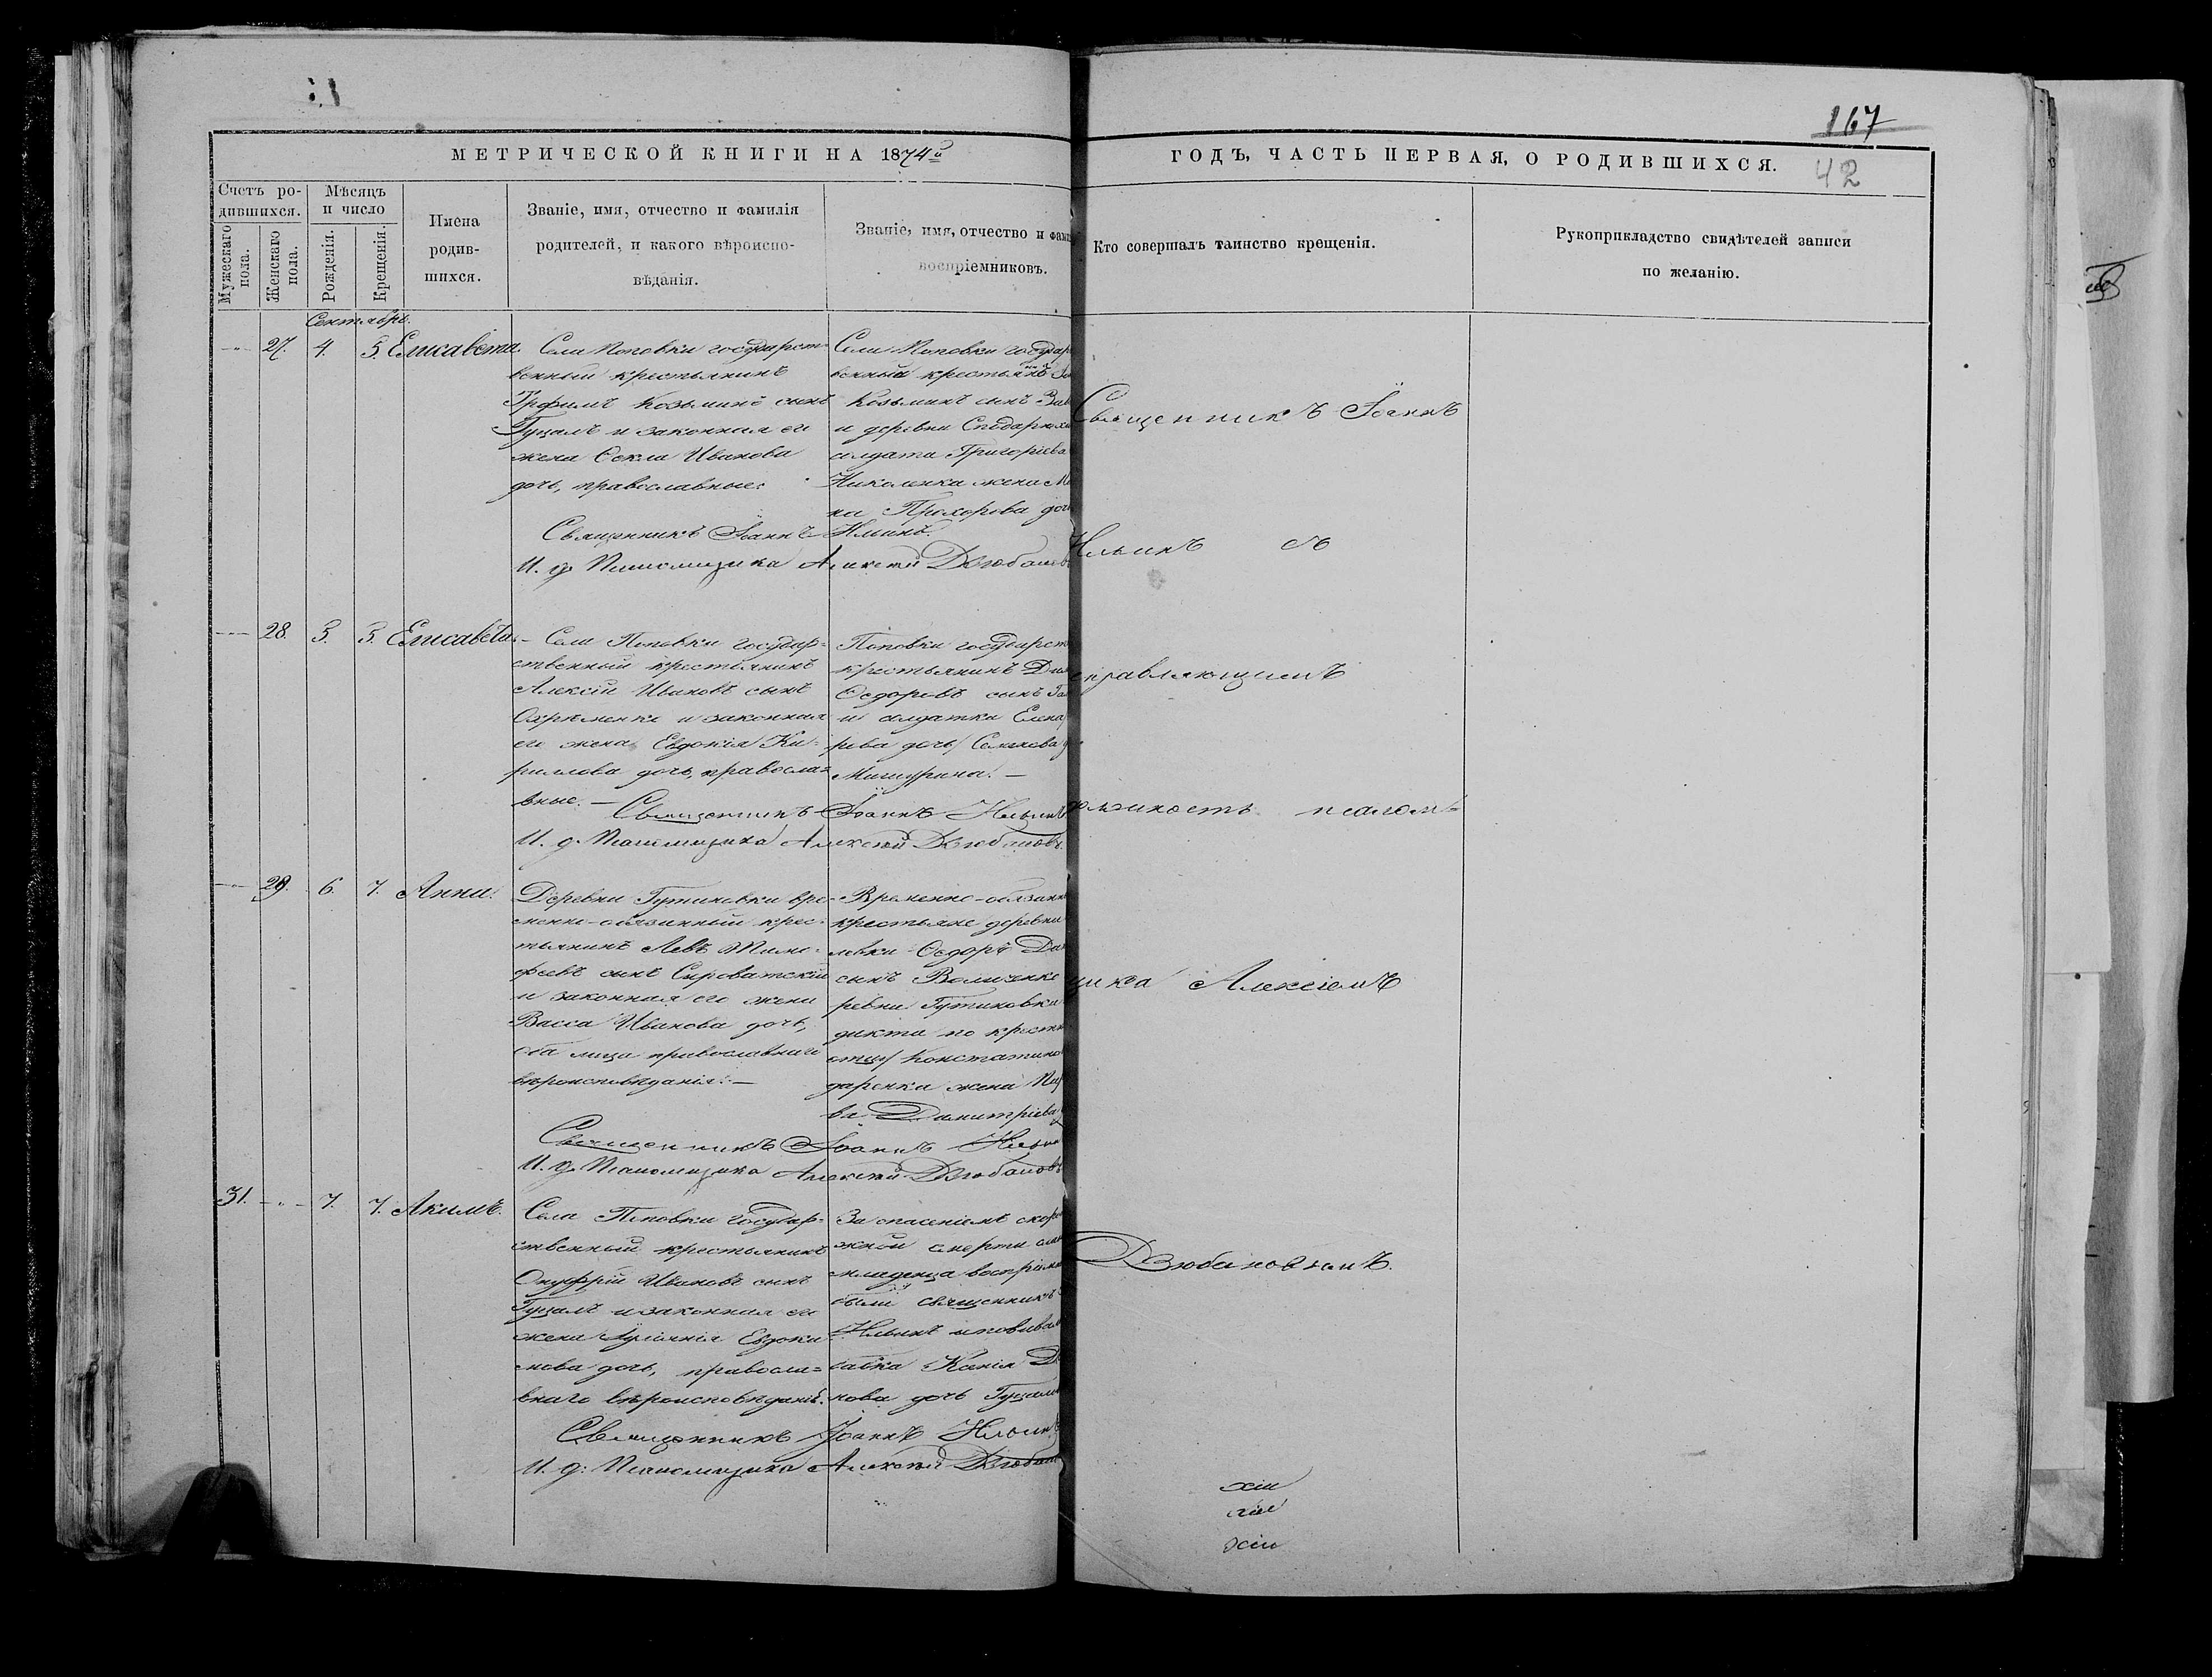 167
42
МЕТРИЧЕСКОЙ КНИГИ НА 1874й
ГОДЪ, ЧАСТЬ ПЕРВАЯ, О РОДИВШИХСЯ.
Счетъ ро-
дившихся.
Мужескаго
пола.
Женскаго
пола.
Мѣсяцъ
и число
Рожденія.
Крещенія.
Имена
родив-
шихся.
Званіе, имя, отчество и фамилія
родителей, и какого вѣроиспо-
вѣданія.
Званіе, имя, отчество и фами
воспріемниковъ.
Кто совершалъ таинство крещенія.
Рукоприкладство свидѣтелей записи
по желанію.
Сентябрь.
27. 4. 5. Елисавета.
Села Поповки государст-
венный крестьянинъ
Трофимъ Козьминъ сынъ
Гуцалъ и законная его
жена Ѳекла Иванова
дочь, православные.
Села Поповки государ
венный крестьянинъ
Козьминъ сынъ
и деревни
солдата Григорія
Николенка жена
на Прохорова доч
Священникъ Іоаннъ Ильинъ.
И. д. Псаломщика Алексѣй Дзюбановъ
28. 5. 5. Елисавета.
Села Поповки государ-
ственный крестьянинъ
Алексій Ивановъ сынъ
Охрѣменко и законная
его жена Евдокія Ки-
риллова дочь, правосла-
вные.
Поповки государст
крестьянинъ
Ѳедоровъ сынъ
и солдатка Елена
рова дочь Семенова
Мишурина.
Священникъ Іоаннъ Ильинъ
И. д. Псаломщика Алексѣй Дзюбановъ.
29. 6. 7. Анна.
Деревни Гутиковки вре-
менно-обязанный крес-
тьянинъ Левъ Тимо-
феевъ сынъ Сыроватскій
и законная его жена
Васса Иванова дочь,
оба лица православнаго
вѣроисповѣданія.
Временно-обязанн
крестьяне деревни
левки Ѳедоръ
сынъ Величенко
ревни Гутиковки
дикта по крестн
отцу Константино
даренка жена
ва Димитріева
Священникъ Іоаннъ Ильин
И. д. Псаломщика Алексѣй Дзюбановъ
31. 7. 7. Акимъ.
Села Поповки государ-
ственный крестьянинъ
Онуфрій Ивановъ сынъ
Гуцалъ и законная его
жена Іуліанія Евдоки-
мова дочь, правосла-
внаго вѣроисповѣданія.
За опасеніемъ скоро
жной смерти
младенца воспріем
были священникъ
Ильинъ и повивал
бабка Ксенія
нова дочь Гуцал
Священникъ Іоаннъ Ильинъ
И. д. Псаломщика Алексѣй Дзюбан
Священникъ Іоаннъ
Ильинъ съ
справляющимъ
должность псалом-
щика Алексіемъ
Дзюбановымъ.